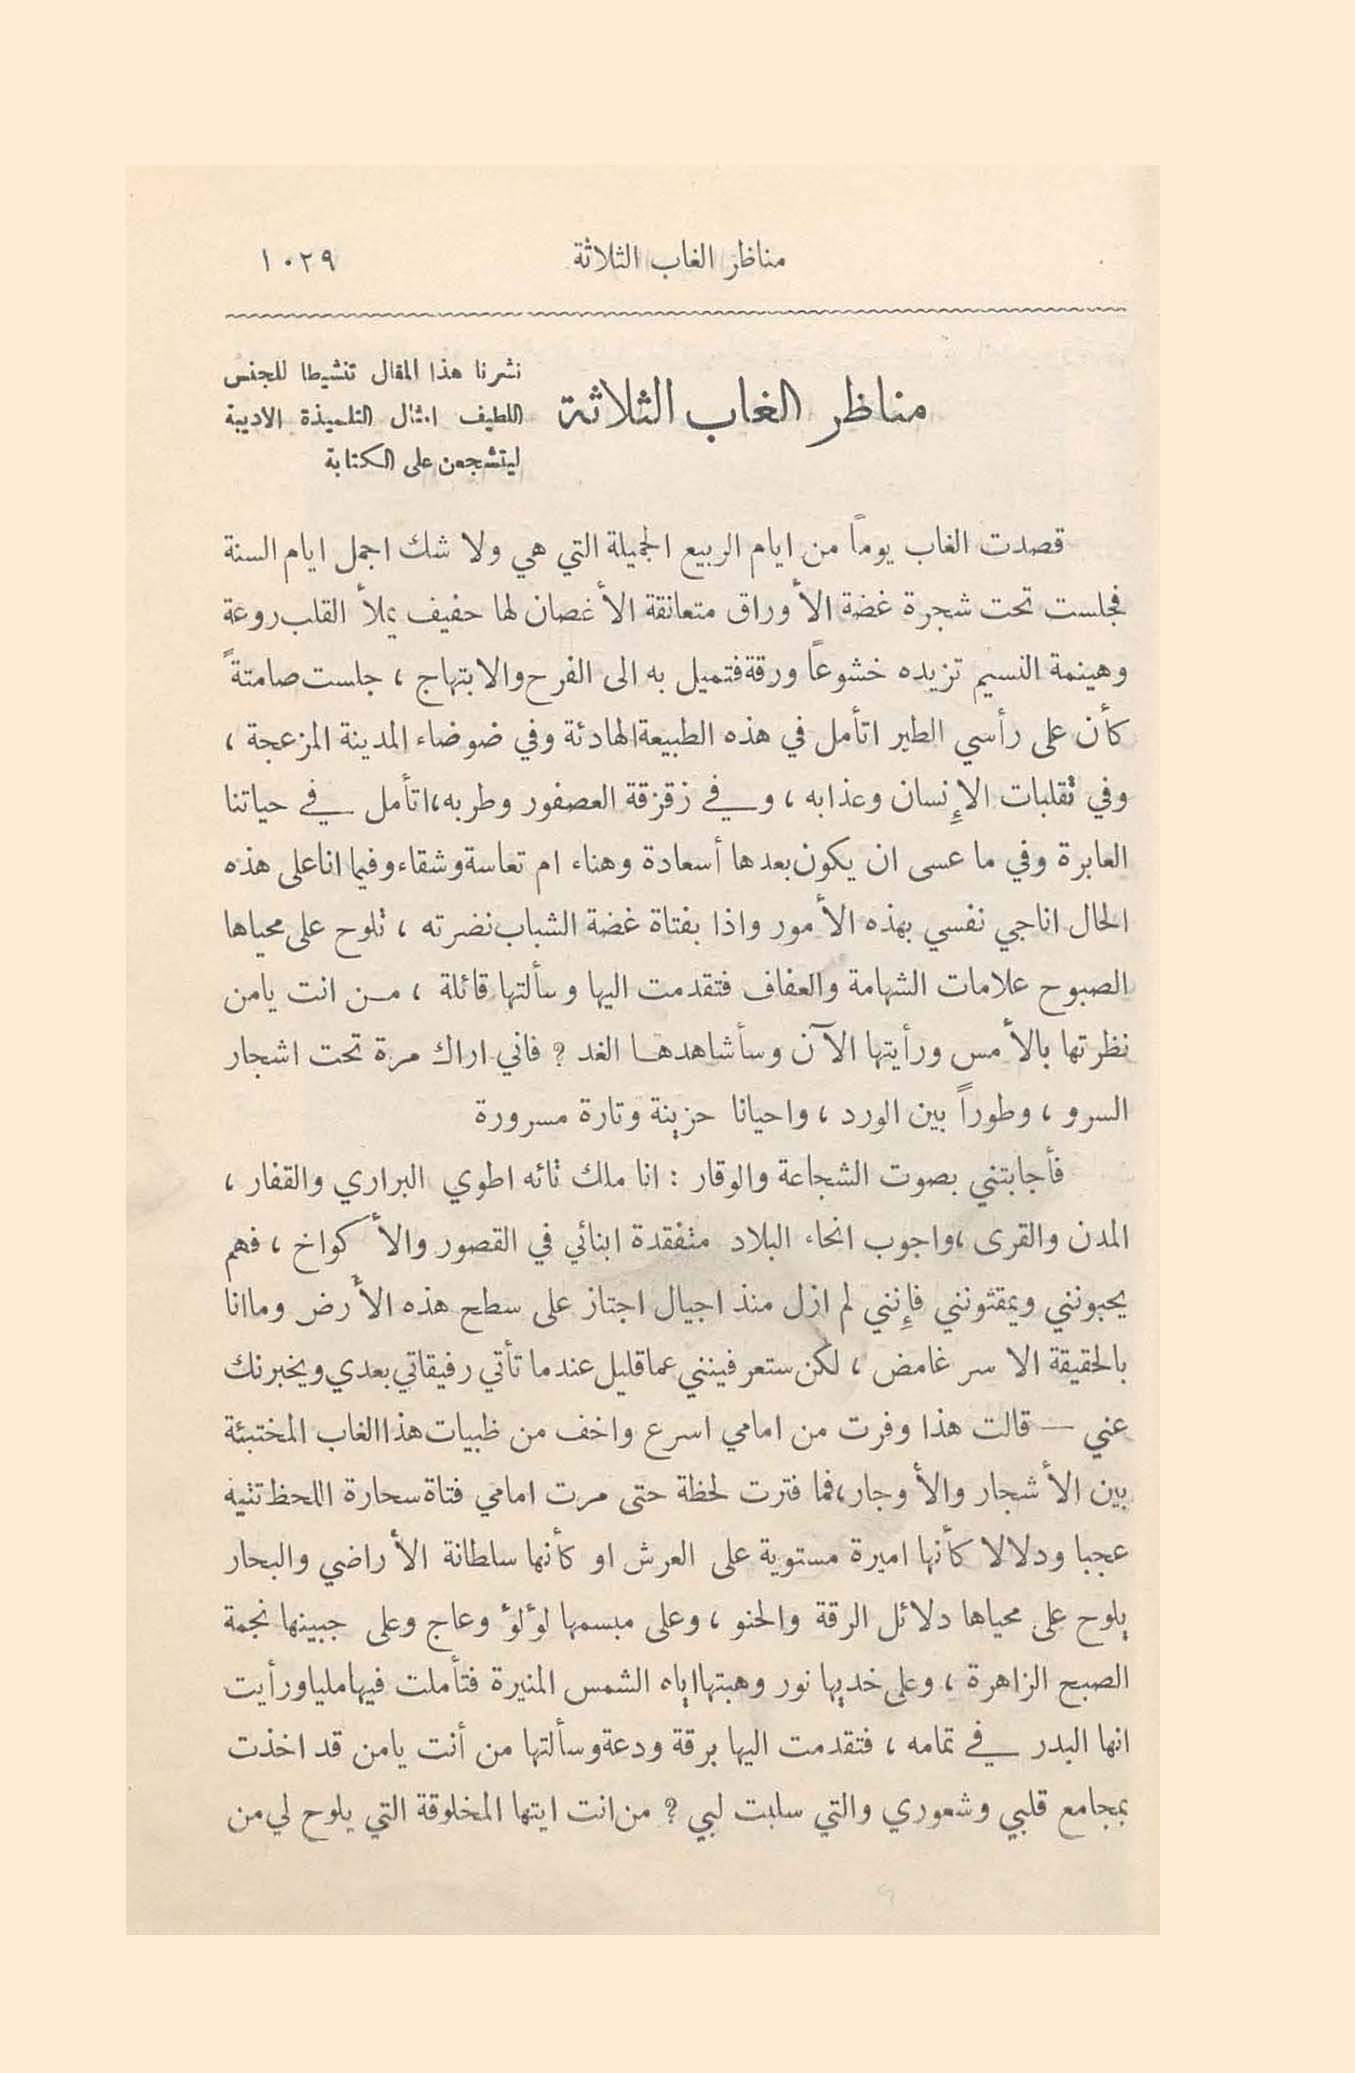 مناظر الغاب الثلاثة ١٠٢٩
مناظر الغاب الثلاثة
نشرنا هذا المقال تنشيطا للجنس
اللطيف امثال التلميذة الاديبة
ليتشجعن على الكتابة
قصدت الغاب يوماً من ايام الربيع الجميلة التي هي ولا شك اجمل ايام السنة
فجلست تحت شجرة غضة الأوراق متعانقة الأغصان لها حفيف يملأ القلب روعة
وهينمة النسيم تزيده خشوعاً ورقة فتميل به الى الفرح والابتهاج ، جلست صامتةً
كأن على رأسي الطير اتأمل في هذه الطبيعة الهادئة وفي ضوضاء المدينة المزعجة ،
وفي تقلبات الإنسان وعذابه ، وفي زقزقة العصفور وطربه، اتأمل في حياتنا
العابرة وفي ما عسى ان يكون بعدها أسعادة وهناء ام تعاسة وشقاء وفيما انا على هذه
الحال اناجي نفسي بهذه الأمور واذا بفتاة غضة الشباب نضرته ، تلوح على محياها
الصبوح علامات الشهامة والعفاف فتقدمت اليها وسألتها قائلة ، من انت يامن
نظرتها بالأمس ورأيتها الآن وسأشاهدها الغد ? فاني اراك مرة تحت اشجار
السرو ، وطوراً بين الورد ، واحيانا حزينة وتارة مسرورة
فأجابتني بصوت الشجاعة والوقار : انا ملك تائه اطوي البراري والقفار ،
المدن والقرى ، واجوب انحاء البلاد متفقدة ابنائي في القصور والأكواخ ، فهم
يحبونني ويمقتونني فإنني لم ازل منذ اجيال اجتاز على سطح هذه الأرض وماانا
بالحقيقة الا سر غامض ، لكن ستعرفينني عما قليل عندما تأتي رفيقاتي بعدي ويخبرنك
عني — قالت هذا وفرت من امامي اسرع واخف من ظبيات هذا الغاب المختبئة
بين الأشجار والأوجار، فما فترت لحظة حتى مرت امامي فتاة سحارة اللحظ تتيه
عجبا ودلالا كأنها اميرة مستوية على العرش او كأنها سلطانة الأراضي والبحار
يلوح على محياها دلائل الرقة والحنو ، وعلى مبسمها لؤلؤ وعاج وعلى جبينها نجمة
الصبح الزاهرة ، وعلى خديها نور وهبتها اياه الشمس المنيرة فتأملت فيها مليا ورأيت
انها البدر في تمامه ، فتقدمت اليها برقة ودعة وسألتها من أنت يامن قد اخذت
بمجامع قلبي وشعوري والتي سلبت لبي ? من انت ايتها المخلوقة التي يلوح لي من